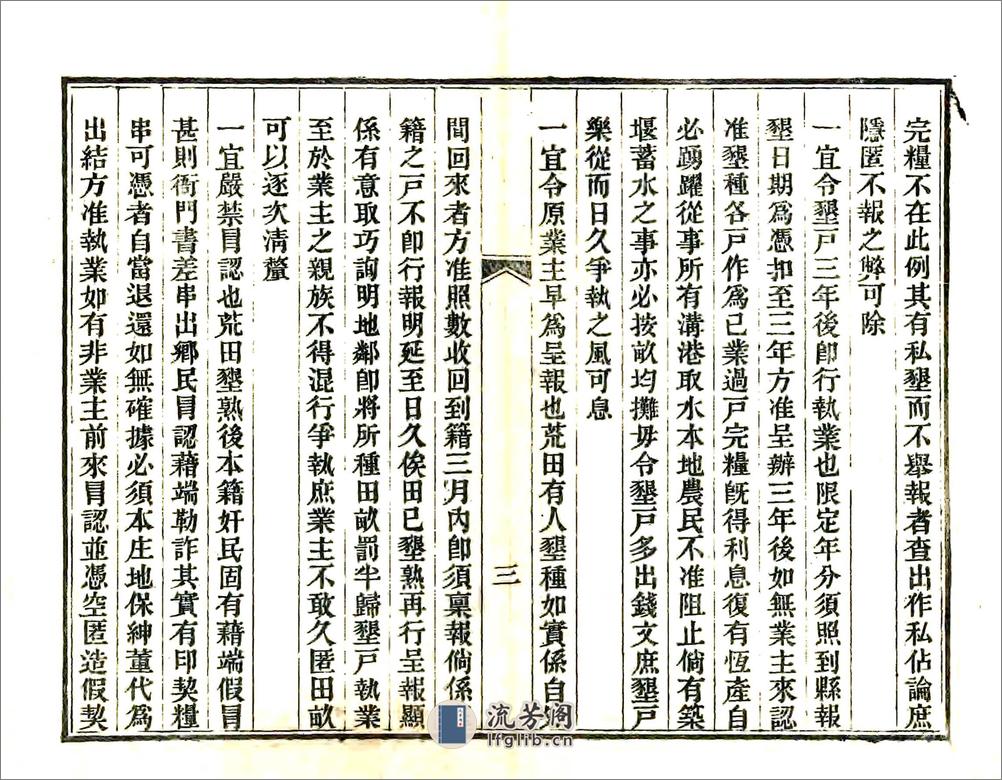 完糧不在此例其有私墾而不舉報者查出作私佔論庶
隱匿不報之弊可除
一宜令墾戸三年後卽行執業也限定年分須照到縣報
墾日期爲憑扣至三年方准呈辦三年後如無業主來認
准墾種各戸作爲己業過戸完糧旣得利息復有恆產自
必踴躍從事所有溝港取水本地農民不准阻止倘有築
堰蓄水之事亦必按畝均攤毋令墾戸多出錢文庶墾戸
樂從而日久爭執之風可息
一宜令原業主早爲呈報也荒田有人墾種如實係自
三
間回來者方准照數收回到籍三月內卽須稟報倘係
籍之戸不卽行報明延至日久俟田已墾熟再行呈報顯
係有意取巧詢明地鄰卽將所種田畝罰半歸墾戸執業
至於業主之親族不得混行爭執庶業主不敢久匿田畝
可以逐次淸釐
一宜嚴禁冒認也荒田墾熟後本籍奸民固有藉端假冒
甚則衙門書差串出鄕民冒認藉端勒詐其實有印契糧
串可憑者自當退還如無確據必須本庄地保紳董代爲
出結方准執業如有非業主前來冒認並憑空匿造假契
流芳阁
lfglib.cn